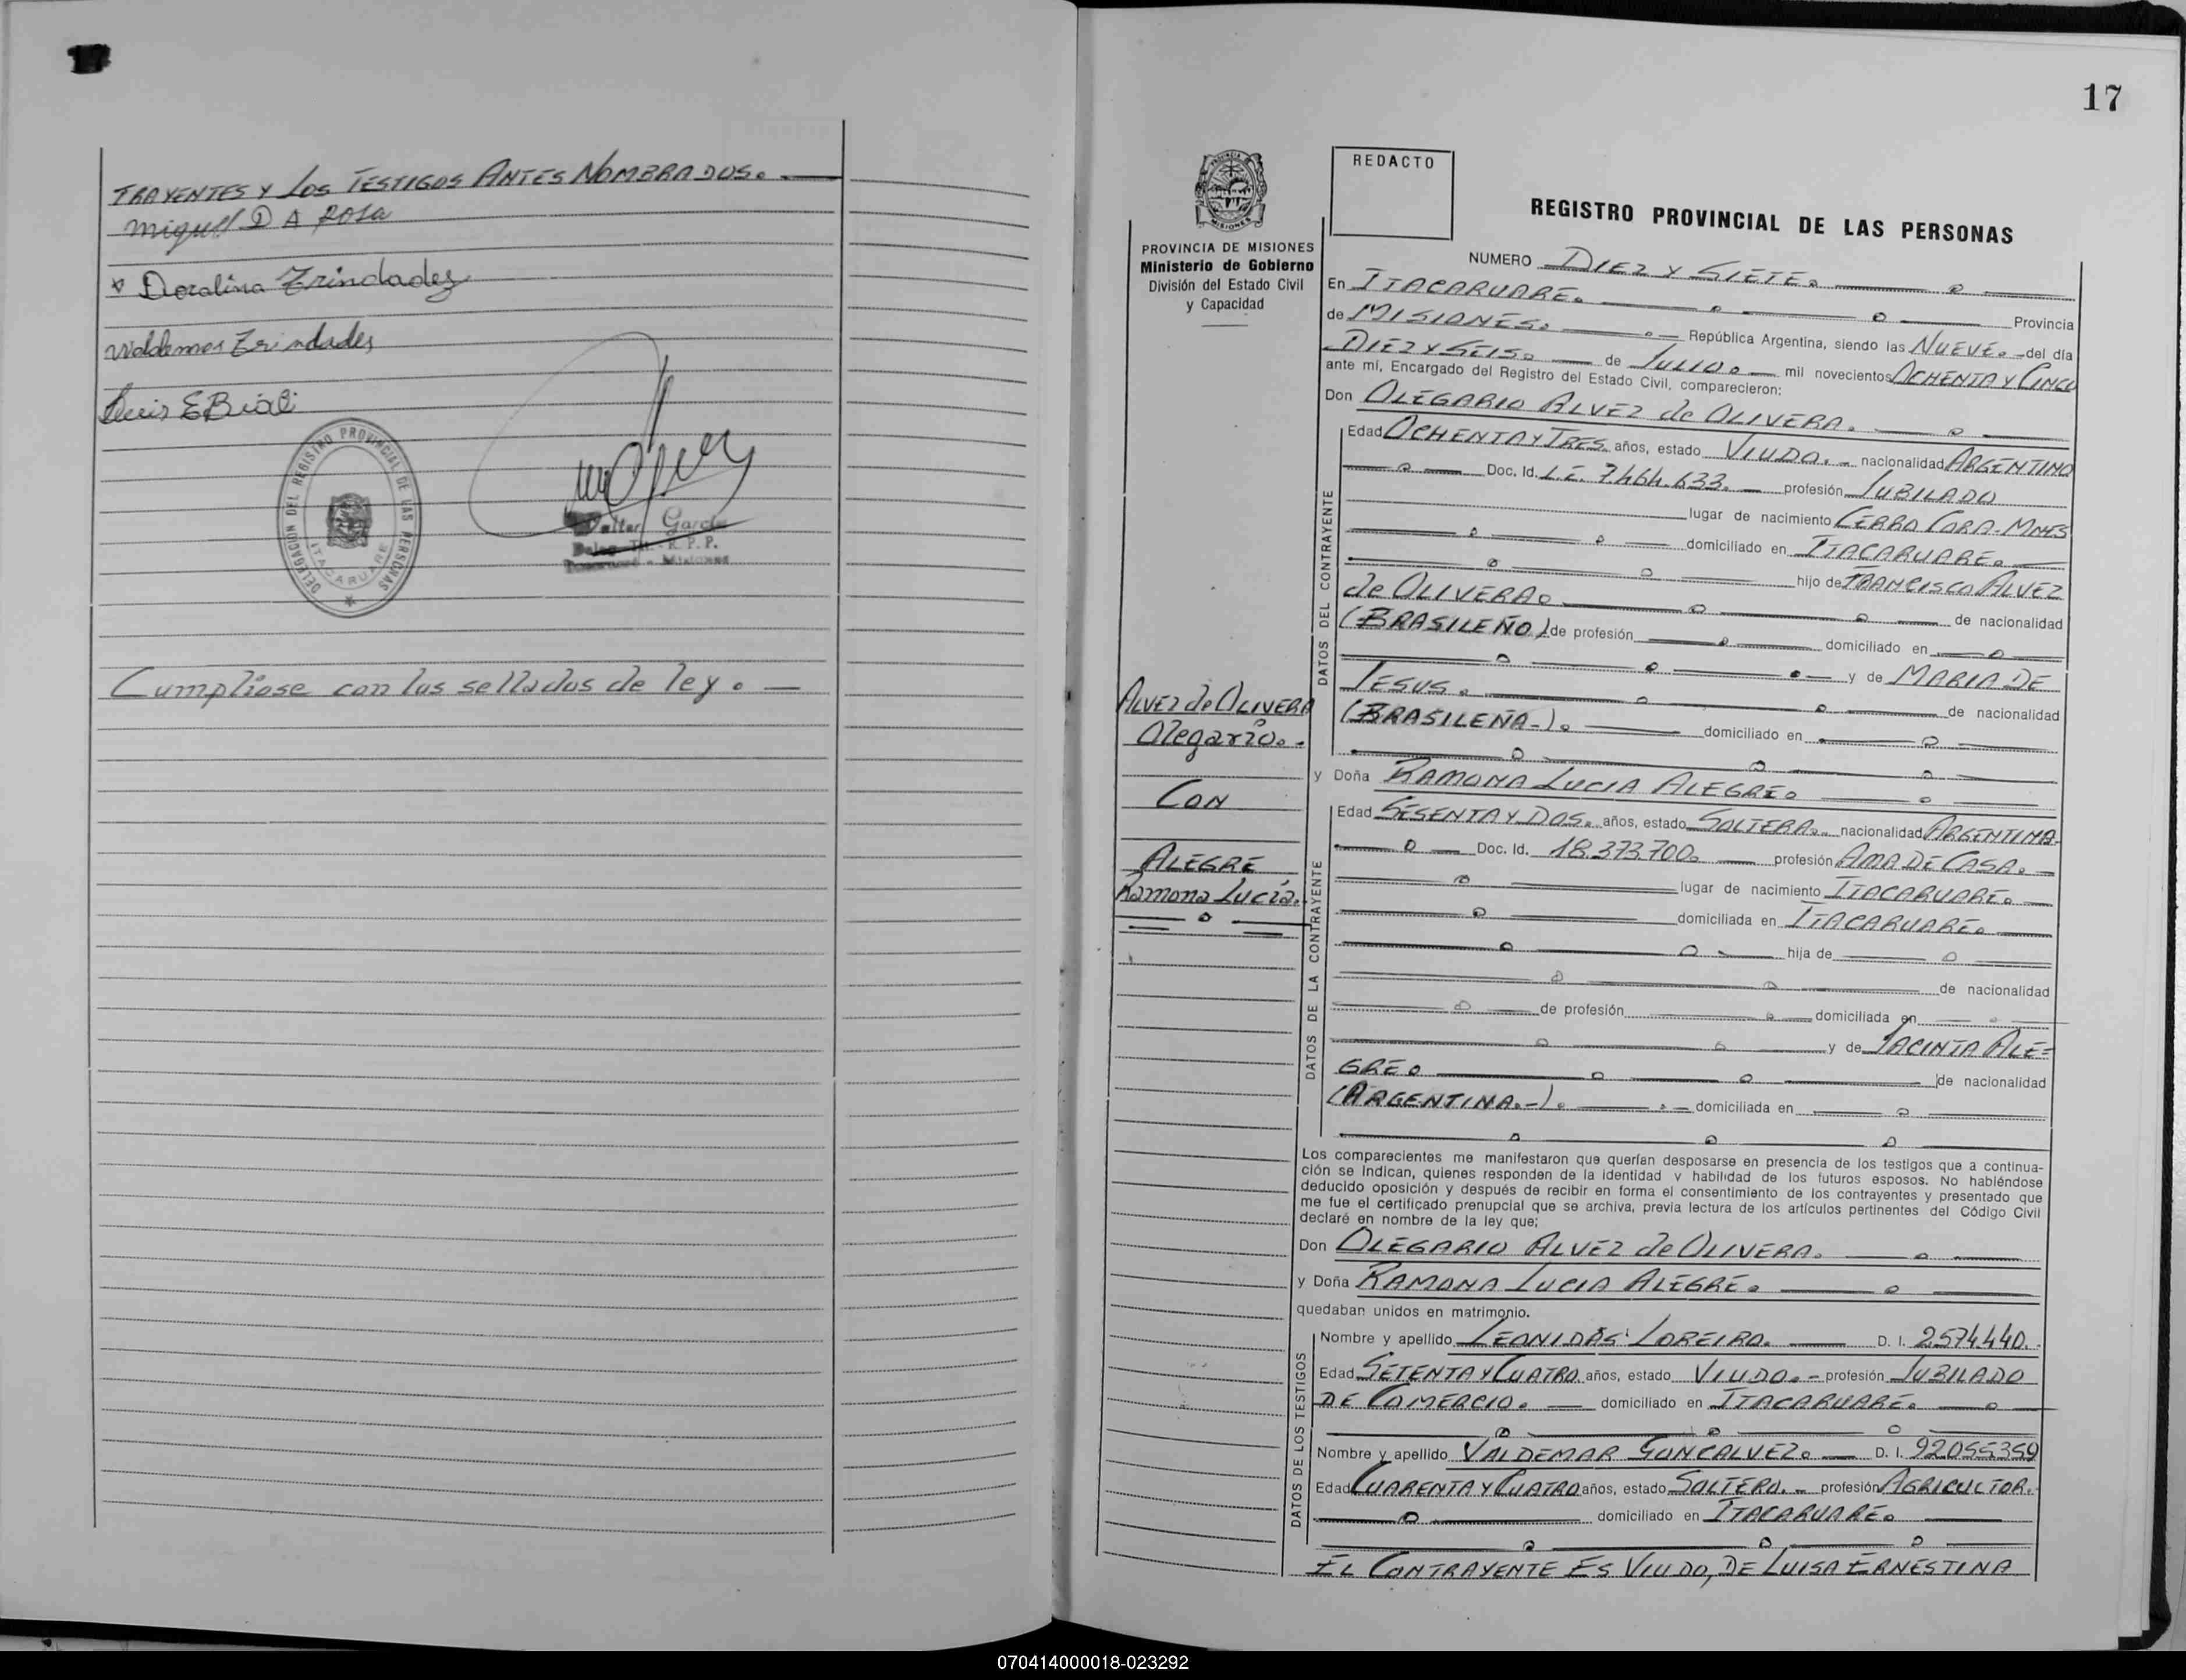 TRAYENTES Y LOS TESTIGOS ANTES NOMBRADOS.
Miguel D A Rosa
Doralina Trindadez
Waldemar Trindades
Luis E Biali
DELEGACION DEL REGISTRO PROVINCIAL DE LAS PERSONAS
ITACARUARE
Walter García
R. P. P.
Misiones
Cumpliose con los sellados de ley.
17
PROVINCIA DE MISIONES
Ministerio de Gobierno
División del Estado Civil
y Capacidad
REDACTO
REGISTRO PROVINCIAL DE LAS PERSONAS
NUMERO DIEZ Y SIETE.
En ITACARUARE. Provincia
de MISIONES. República Argentina, siendo las NUEVE. del día
DIEZ Y SEIS. de JULIO. mil novecientos OCHENTA Y CINCO
ante mí, Encargado del Registro del Estado Civil, comparecieron:
Don OLEGARIO ALVEZ de OLIVERA.
DATOS DEL CONTRAYENTE
Edad OCHENTA Y TRES años, estado VIUDO. nacionalidad ARGENTINO
Doc. Id. L.E. 7.464.633. profesión JUBILADO
lugar de nacimiento CERRO CORA-MNES
domiciliado en ITACARUARE.
hijo de FRANCISCO ALVEZ
de OLIVERA. de nacionalidad
(BRASILEÑO) de profesión domiciliado en
y de MARIA DE
JESUS. de nacionalidad
(BRASILEÑA-). domiciliado en
ALVEZ de OLIVERA
Olegario.
CON
ALEGRE
Ramona Lucia.
y Doña RAMONA LUCIA ALEGRE.
DATOS DE LA CONTRAYENTE
Edad SESENTA Y DOS. años, estado SOLTERA. nacionalidad ARGENTINA
Doc. Id. 18.373.700. profesión AMA DE CASA.
lugar de nacimiento ITACARUARE.
domiciliada en ITACARUARE.
hija de
de nacionalidad
de profesión domiciliada en
y de JACINTA ALE=
GRE. de nacionalidad
(ARGENTINA.-). domiciliada en
Los comparecientes me manifestaron que querían desposarse en presencia de los testigos que a continua-
ción se indican, quienes responden de la identidad y habilidad de los futuros esposos. No habiéndose
deducido oposición y después de recibir en forma el consentimiento de los contrayentes y presentado que
me fue el certificado prenupcial que se archiva, previa lectura de los artículos pertinentes del Código Civil
declaré en nombre de la ley que;
Don OLEGARIO ALVEZ de OLIVERA.
y Doña RAMONA LUCIA ALEGRE.
quedaban unidos en matrimonio.
DATOS DE LOS TESTIGOS
Nombre y apellido LEONIDAS LOREIRO. D. I. 2574440.
Edad SETENTA Y CUATRO. años, estado VIUDO. profesión JUBILADO
DE COMERCIO. domiciliado en ITACARUARE.
Nombre y apellido VALDEMAR GONCALVEZ. D. I. 92055359
Edad CUARENTA Y CUATRO años, estado SOLTERO. profesión AGRICULTOR.
domiciliado en ITACARUARE.
EL CONTRAYENTE ES VIUDO, DE LUISA ERNESTINA
070414000018-023292